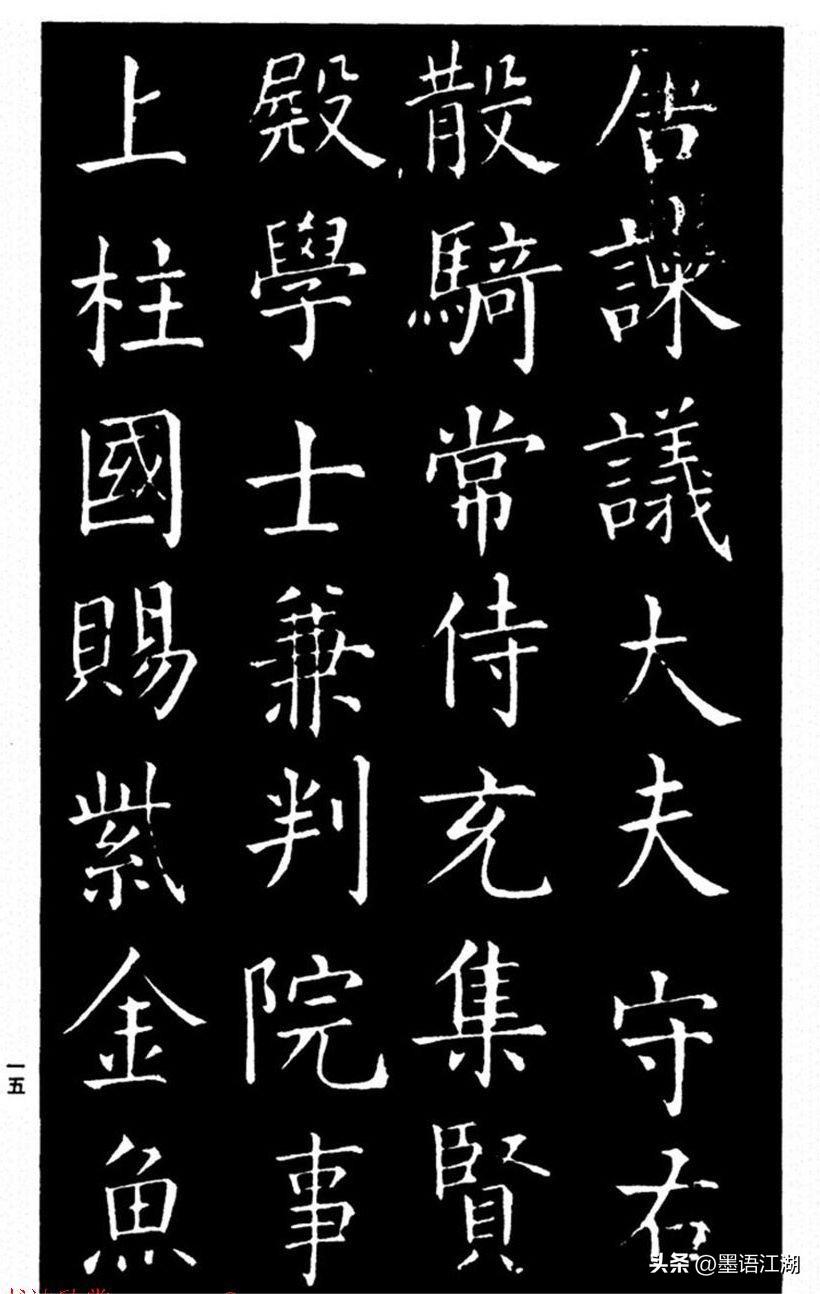 諫議大夫守右
散騎常侍充集賢
殿學士兼判院事
上柱國賜紫金魚
一五
头条 @墨语江湖